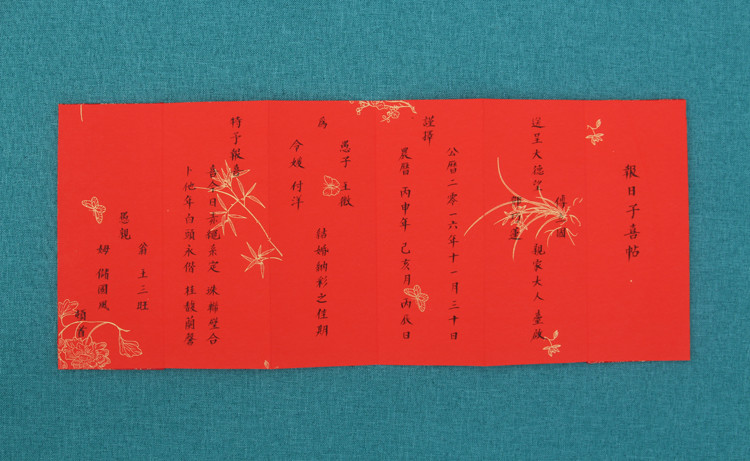 報日子喜帖
送呈大德望 傅 國 親家大人臺啟
運
謹擇
公曆二零一六年十一月三十日
農曆丙申年 己亥月 丙辰日
為
愚子 王微
令媛 付洋
結婚納彩之佳期
特予報喜
喜今日赤繩系定 珠聯璧合
卜他年白頭永偕 桂馥蘭馨
愚親
翁 王三旺
姆 儲國鳳
頓首